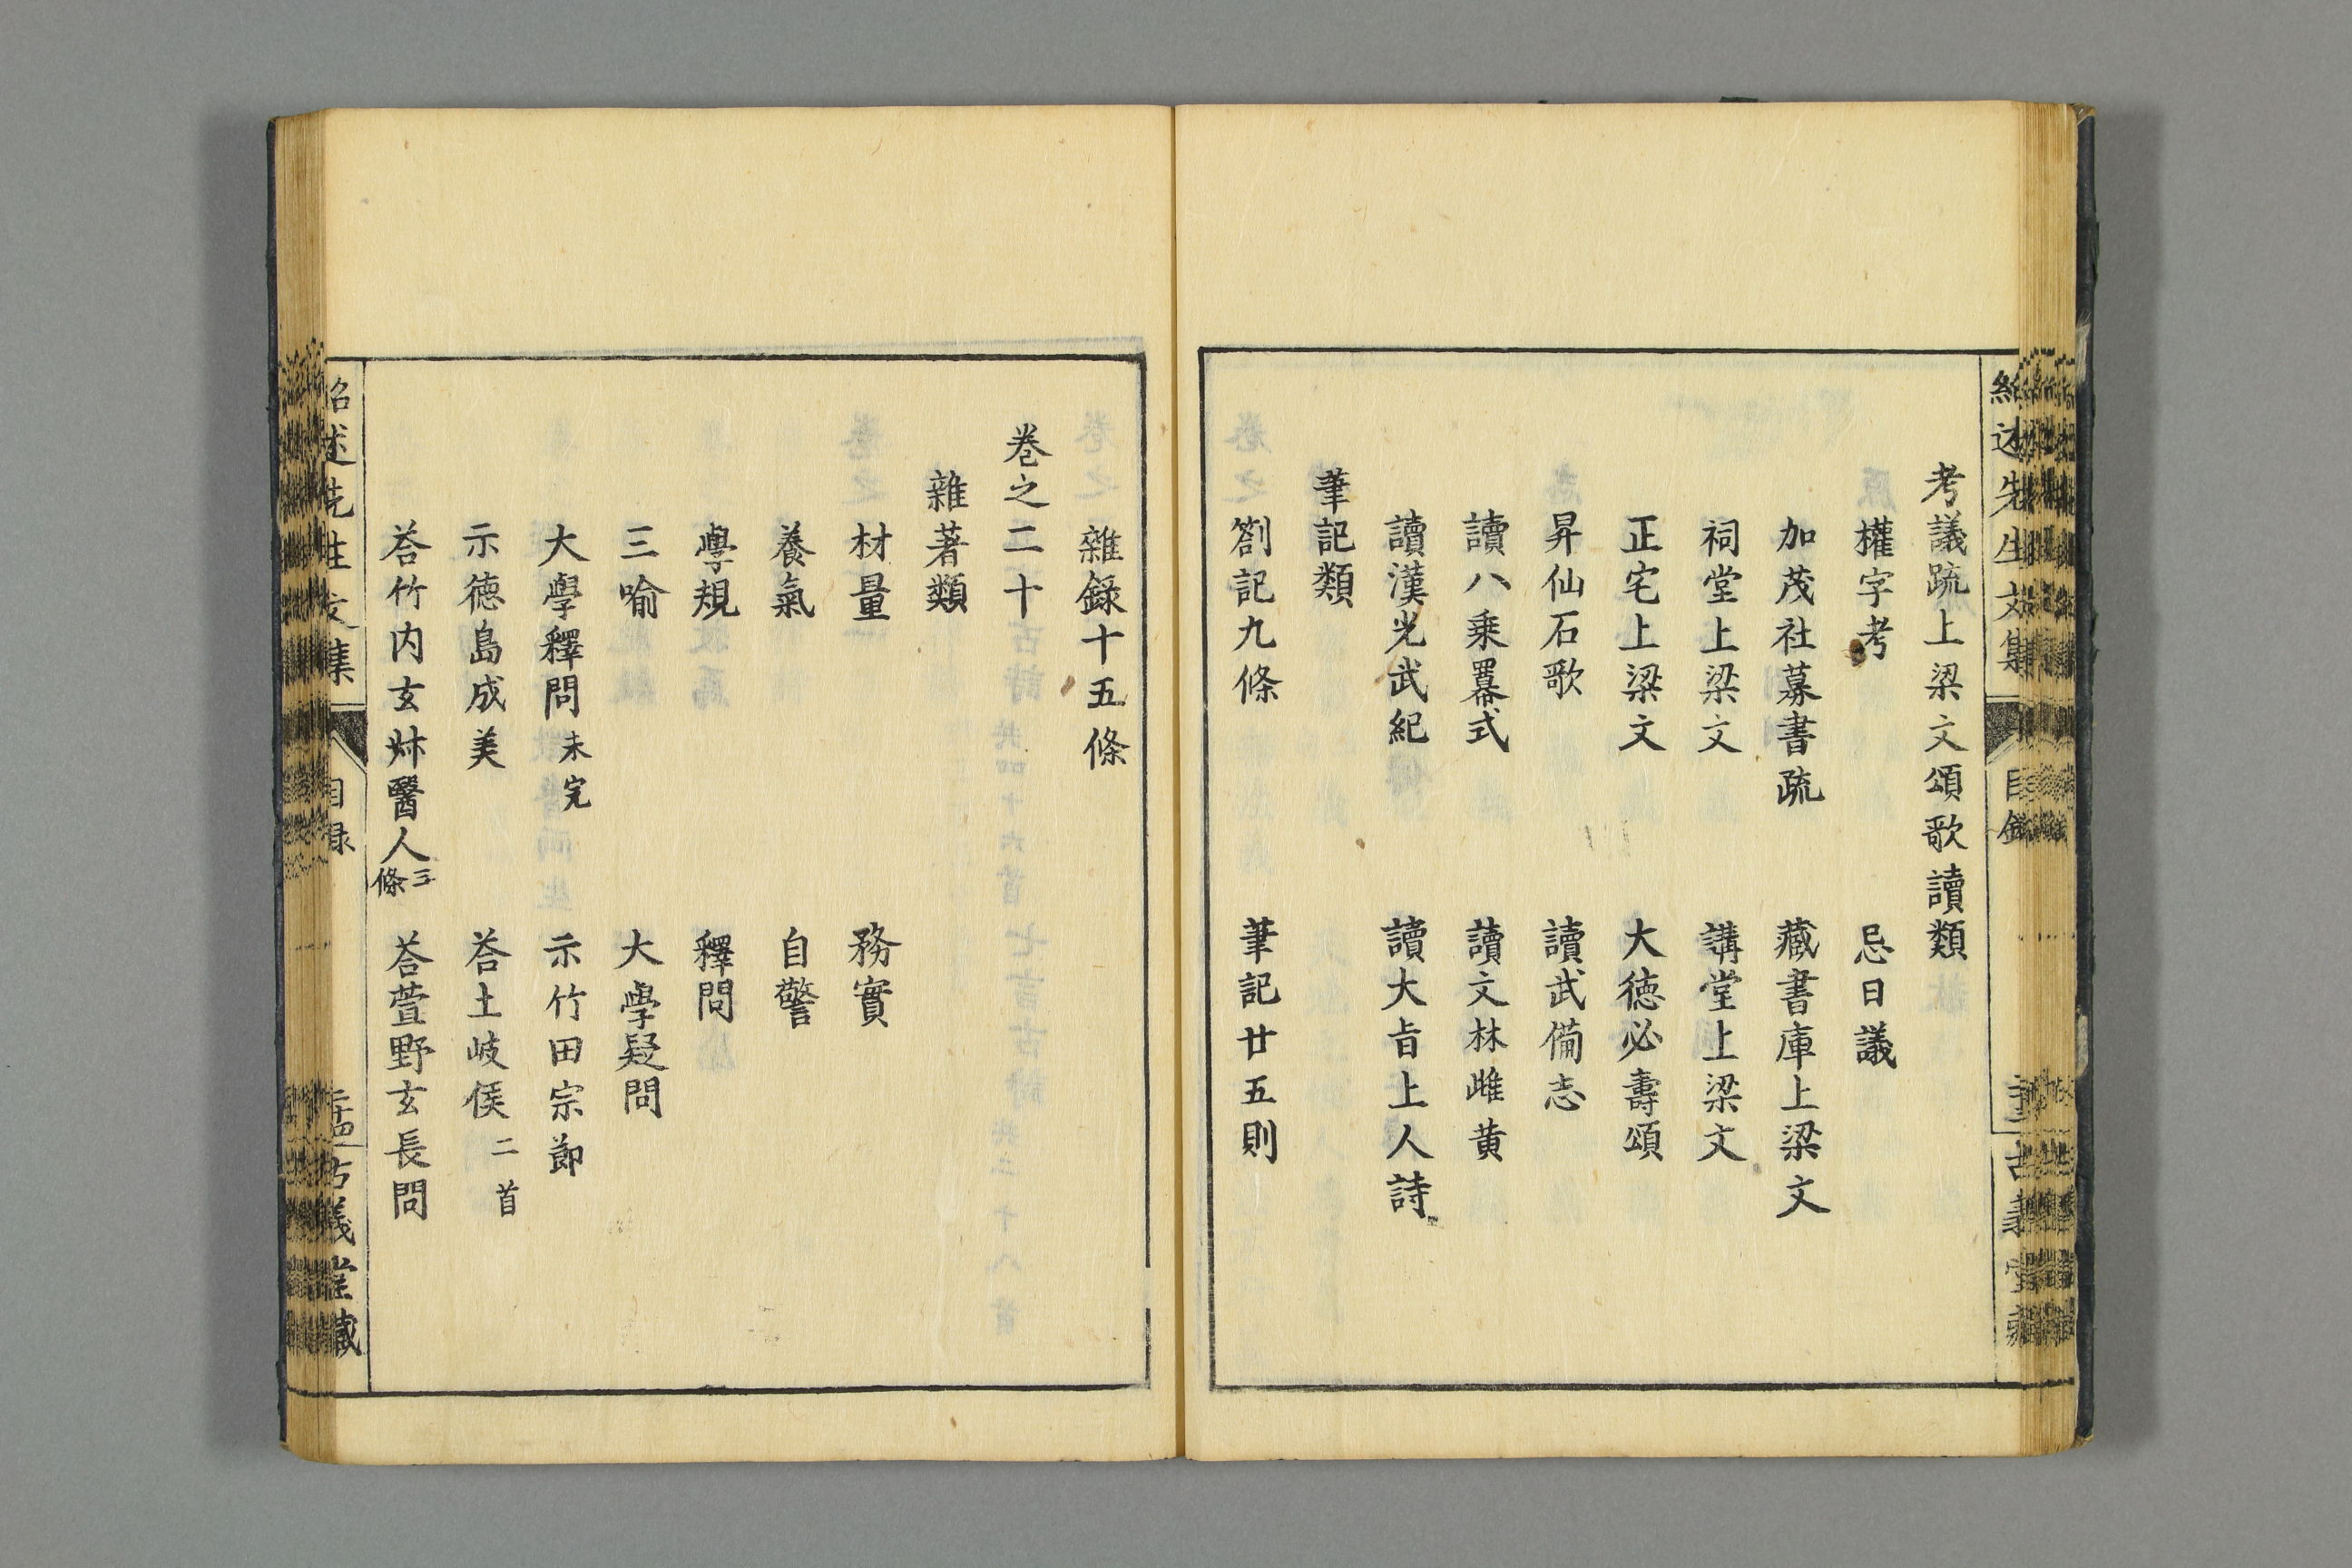 紹述先生文集　目録　古義堂藏
考議疏上梁文頌歌讀類
權字考　忌日議
加茂社募書疏　藏書庫上梁文
祠堂上梁文　講堂上梁文
正宅上梁文　大德必壽頌
昇仙石歌　讀武備志
讀八乗羃式　讀文林雌黄
讀漢光武紀　讀大旨上人詩
筆記類
劄記九條　筆記廿五則
雜録十五條
卷之二十
雜著類
材量　務實
養氣　自警
學規　釋問
三喻　大學疑問
大學釋問未完　示竹田宗節
示德島成美　荅土岐侯二首
荅竹内玄艸醫人三條　荅萱野玄長問
紹述先生文集　目録　二十四　古義堂藏